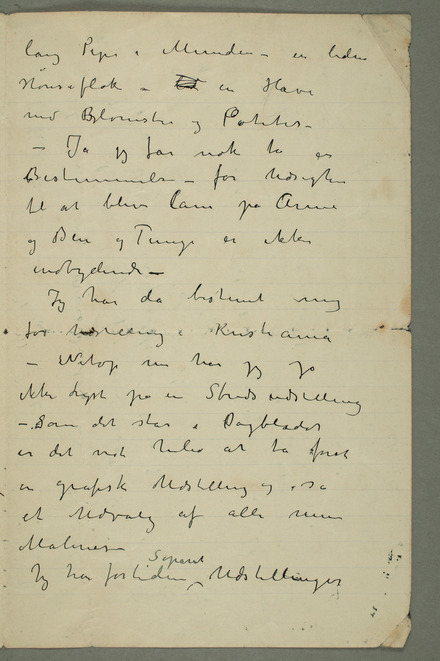 lang Pipe i Munden – en liden
Hønseflok – en Have
med Blomster og Poteter –
– Ja jeg får nok ta en
Bestemmelse – for Udsigten
til at blive lam på Arme
og Ben og Tunge er ikke
indbydende –
Jeg har da bestemt mig
for Udstilling i Kristiania
– Netop nu har jeg jo
ikke Lyst på en Stridsudstilling
– Som det står i Dagbladet
er det nok bedst at ta først
en grafisk Udstilling og så
et Udvalg af alle mine
Malerier –
Soparet
Jeg har fortiden Udstillinger